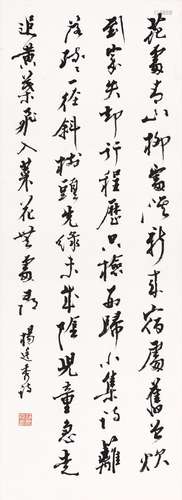 花處青山柳處溪新來宿處舊曾炊
到家失却行程歷只檢西歸小集詩籬
落疏々一徑斜樹頭先綠未成陰兒童急走
追黃葉飛入菜花無處尋 楊廷秀詩